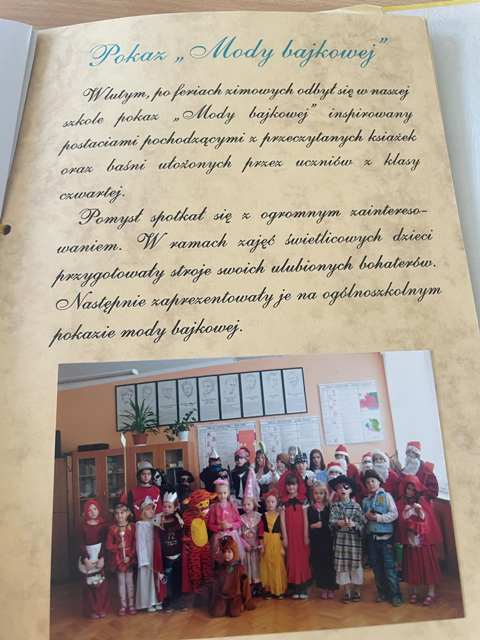 Pokaz „Mody bajkowej”
W lutym, po feriach zimowych odbył się w naszej
szkole pokaz „Mody bajkowej” inspirowany
postaciami pochodzącymi z przeczytanych książek
oraz baśni ułożonych przez uczniów z klasy
czwartej.
Pomysł spotkał się z ogromnym zaintereso-
waniem. W ramach zajęć świetlicowych dzieci
przygotowały stroje swoich ulubionych bohaterów.
Następnie zaprezentowały je na ogólnoszkolnym
pokazie mody bajkowej.